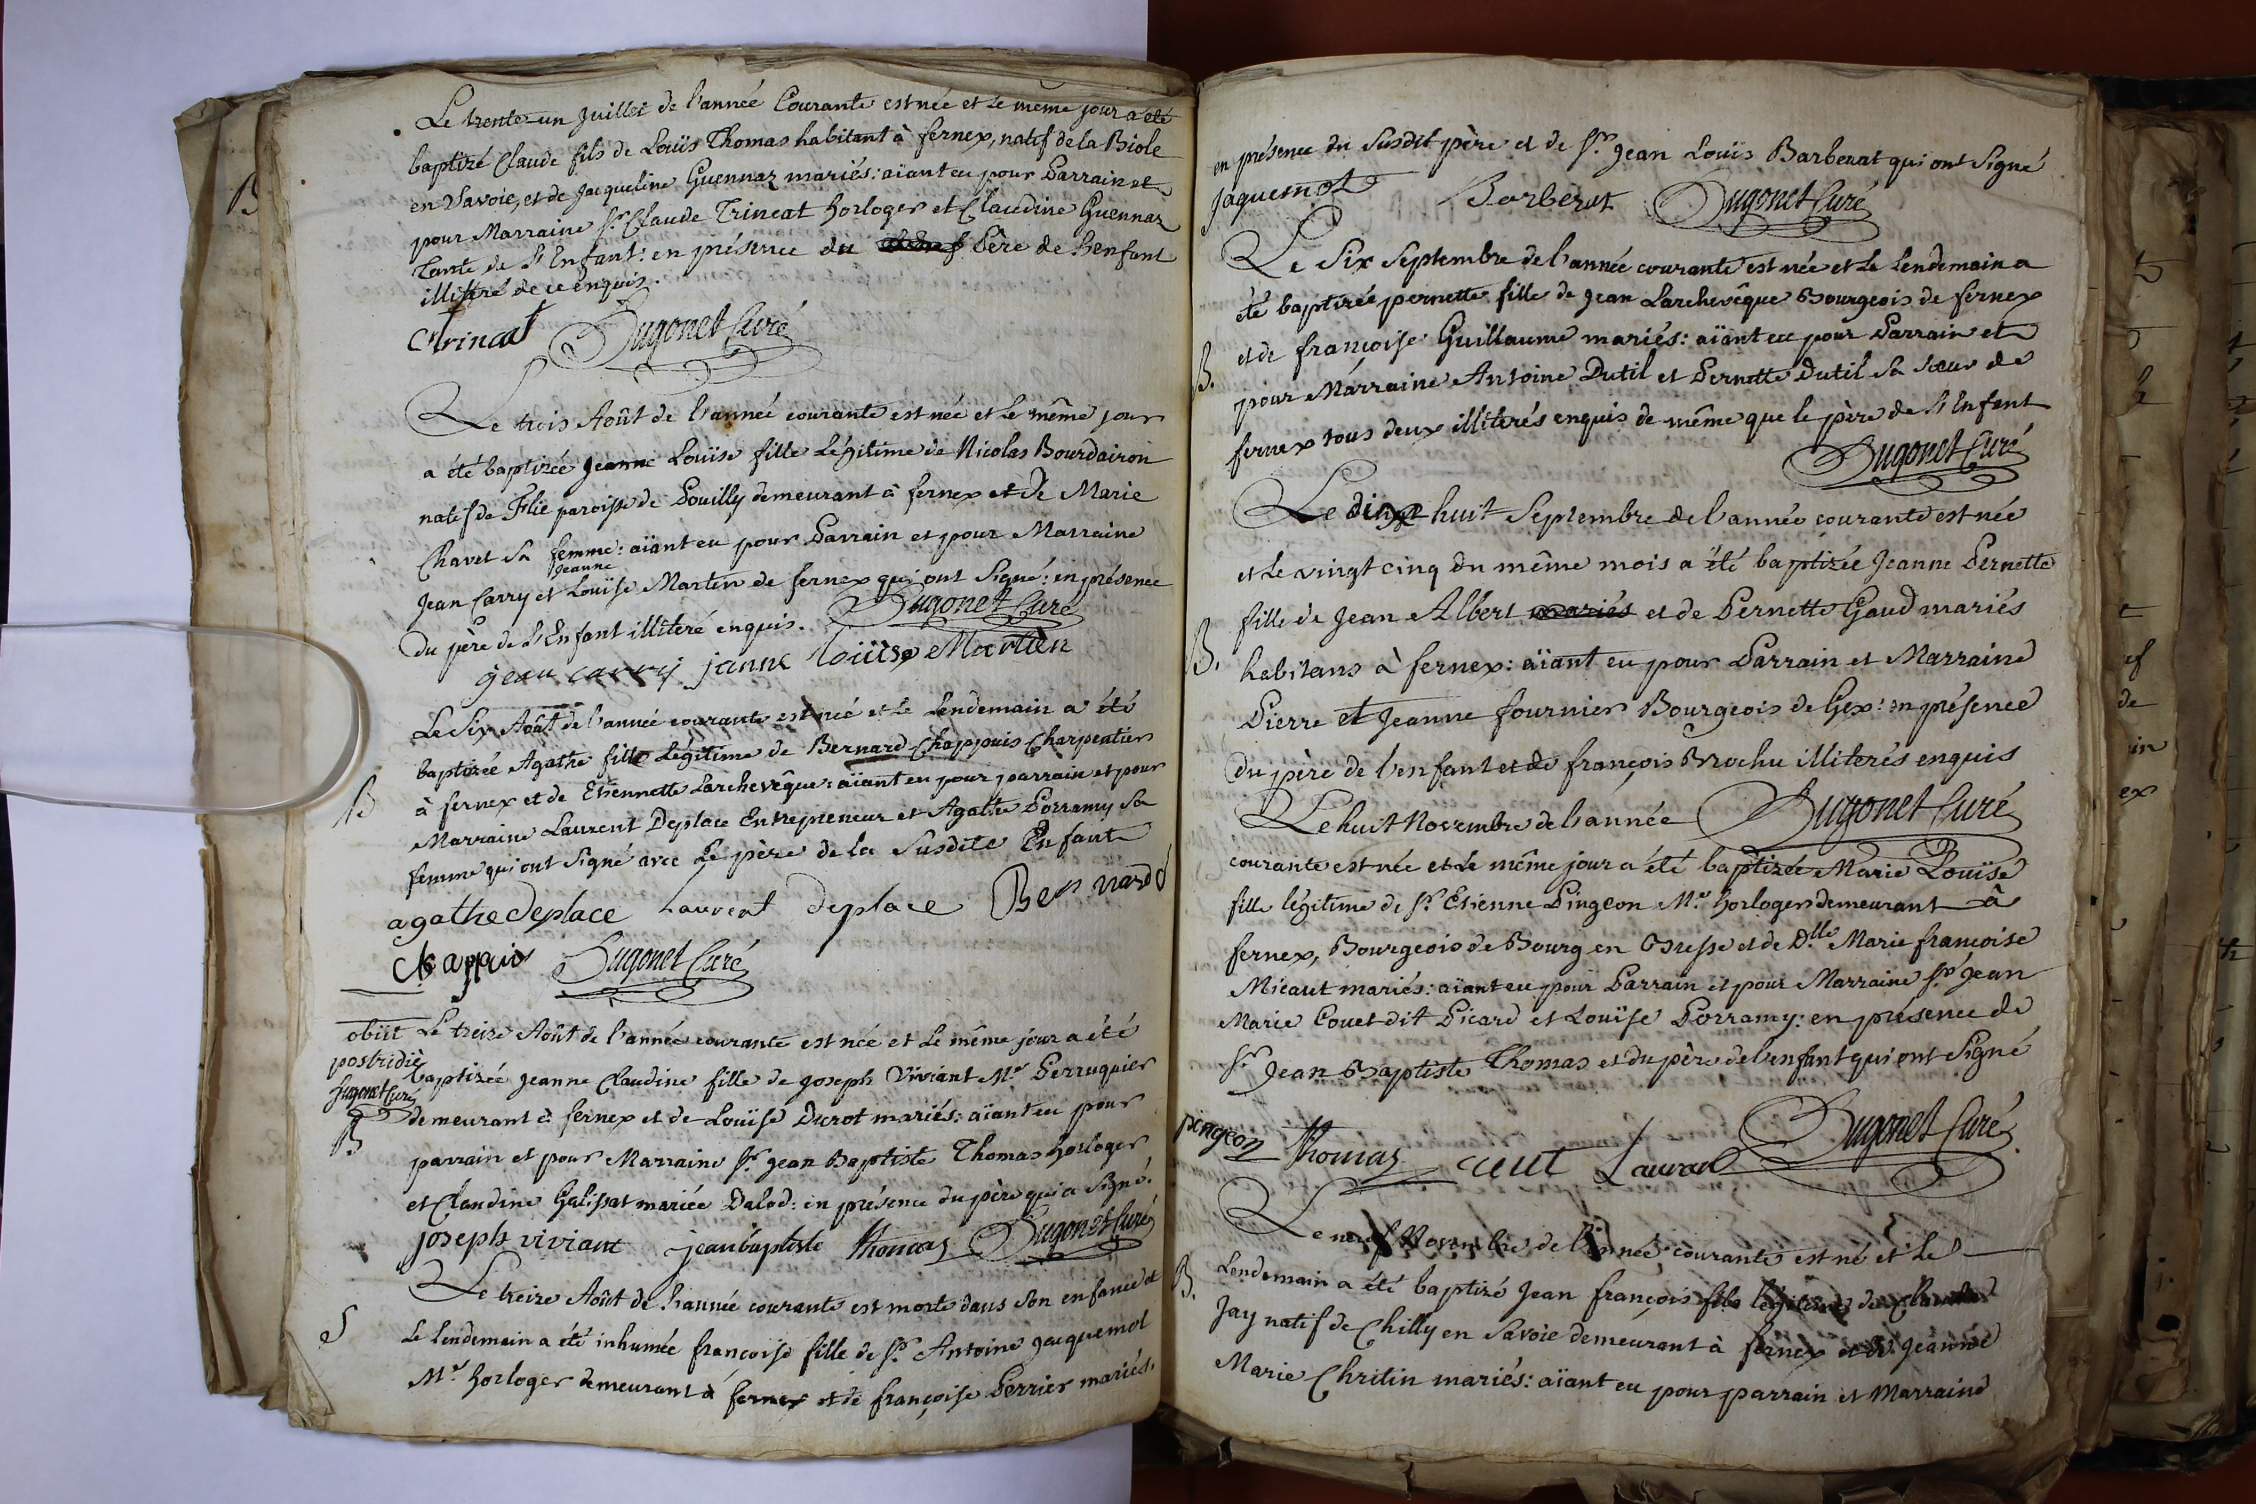 Le trente-un Juillet de l'année Courante est née et le même jour a été
baptizé Claude fils de Louïs Thomas habitant à fernex, natif de la Biole
en Savoie, et de Jacqueline Guennaz mariés: aïant eu pour Parrain et
pour Marraine Sr. Claude Trincat horloger et Claudine Guennaz
Tante de l'Enfant: en présence du Père de l'enfant
illiteré de ce enquis.
CTrincat Hugonet Curé
Le trois Août de l'année courante est née et le même jour
a été baptizée Jeanne Louïse fille légitime de Nicolas Bourdairon
natif de Flie paroisse de Pouilly demeurant à fernex et de Marie
Chavet sa femme: aïant eu pour Parrain et pour Marraine
Jeanne
Jean Carry et Louïse Martin de fernex qui ont Signé: en présence
du père de l'Enfant illiteré enquis. Hugonet Curé
jean carry janne loüise Martien
Le Six Août de l'année courante est née et le lendemain a été
baptizée Agathe fille légitime de Bernard Chappuis Charpentier
B à fernex et de Etiennette Larchevêque: aïant eu pour parrain et pour
Marraine Laurent Deplace Entrepreneur et Agathe Porramy sa
femme qui ont Signé avec le père de la Susdite Enfant
agathe deplace Laurent deplace Bernard
Chappuis Hugonet Curé
obiit Le treize Août de l'année courante est née et le même jour a été
postridiè baptizée Jeanne Claudine fille de Joseph Viviant Me. Perruquier
Hugonet Curé demeurant à fernex et de Louïse Ducrot mariés: aïant eu pour
B parrain et pour Marraine Sr. Jean Baptiste Thomas horloger
et Claudine Galissat mariée Dalod: en présence du père qui a Signé.
joseph viviant jeanbaptiste thomas Hugonet Curé
Le treize Août de l'année courante est morte dans Son enfance et
S le lendemain a été inhumée françoise fille de Sr. Antoine Jacquemot
Me. horloger demeurant à fernex et de françoise Perrier mariés.
en présence du Susdit père et de Sr. Jean Louïs Barberat qui ont Signé
Jaquemot Barberat Hugonet Curé
Le Six Septembre de l'année courante est née et le lendemain a
été baptizée pernette fille de Jean Larchevêque Bourgeois de fernex
B. et de françoise Guillaume mariés: aïant eu pour Parrain et
pour Marraine Antoine Dutil et Pernette Dutil Sa Sœur de
fernex tous deux illiterés enquis de même que le père de l'Enfant
Hugonet Curé
Le dix huit Septembre de l'année courante est née
et le vingt cinq du même mois a été baptizée Jeanne Pernette
fille de Jean Albert mariés et de Pernette Gaud mariés
B. habitans à fernex: aïant eu pour Parrain et Marraine
Pierre et Jeanne fournier Bourgeois de Gex: en présence
du père de l'enfant et de françois Brochu illiterés enquis
Le huit Novembre de l'année Hugonet Curé
courante est née et le même jour a été baptizée Marie Louïse
fille légitime de Sr. Etienne Pingeon Me. horloger demeurant à
fernex, Bourgeois de Bourg en Bresse et de Dlle Marie françoise
Micaut mariés: aïant eu pour Parrain et pour Marraine Sr. Jean
Marie Couet dit Picard et Louïse Porramy: en présence de
Sr. Jean Baptiste Thomas et du père de l'enfant qui ont Signé
pingeon Thomas Hugonet Curé
Le neuf Novembre de l'année courante est né et le
B. lendemain a été baptizé Jean françois fils légitime de Claude
Jay natif de Chilly en Savoie demeurant à fernex et de Jeanne
Marie Chritin mariés: aïant eu pour parrain et Marraine